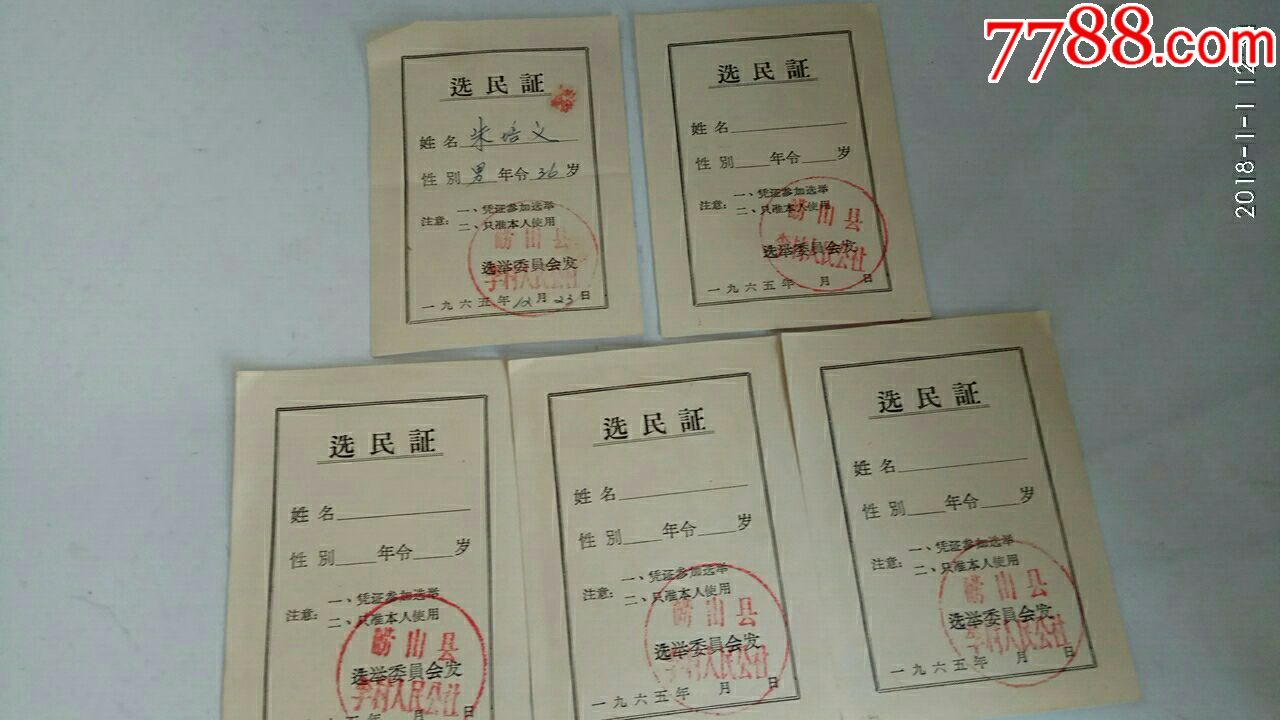 7788.com
2018-1-1 12
选民証
姓名 朱培义
性别 男 年令 36 岁
注意: 一、凭证参加选举
二、只准本人使用
崂山县
选举委員会发
李村人民公社
一九六五年12月23日
选民証
姓名
性别 年令 岁
注意: 一、凭证参加选举
二、只准本人使用
崂山县
选举委員会发
李村人民公社
一九六五年 月 日
选民証
姓名
性别 年令 岁
注意: 一、凭证参加选举
二、只准本人使用
崂山县
选举委員会发
李村人民公社
五年 月 日
选民証
姓名
性别 年令 岁
注意: 一、凭证参加选举
二、只准本人使用
崂山县
选举委員会发
李村人民公社
一九六五年 月 日
选民証
姓名
性别 年令 岁
注意: 一、凭证参加选举
二、只准本人使用
崂山县
选举委員会发
李村人民公社
一九六五年 月 日